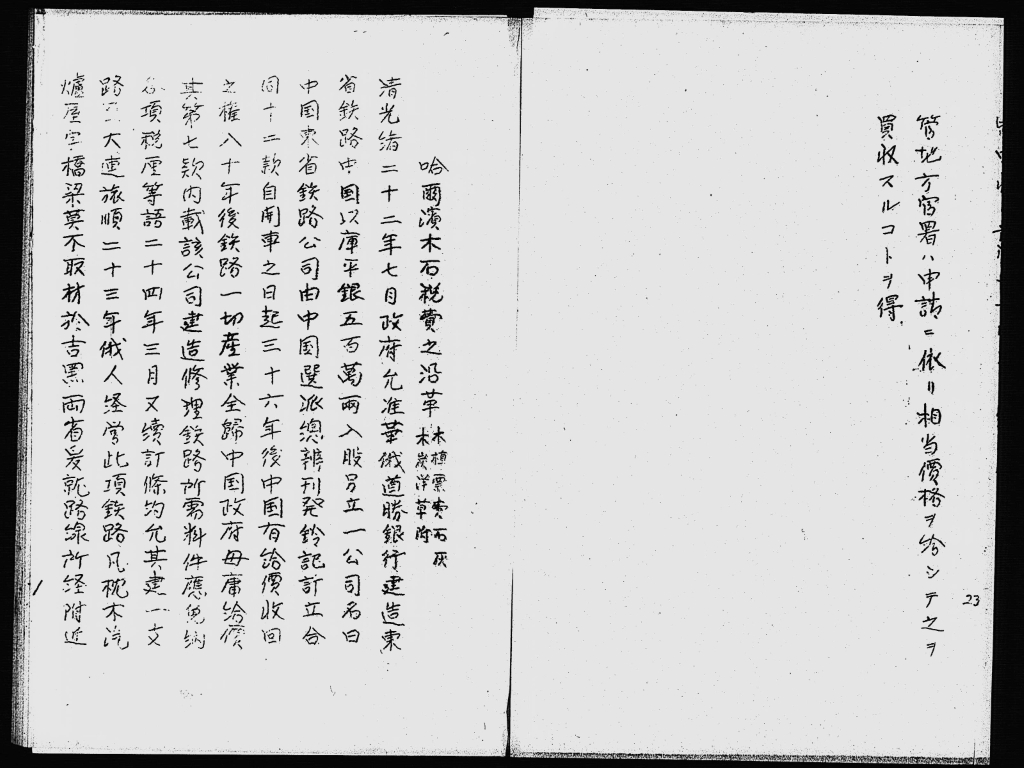 管地方官署ハ申請ニ依リ相当價格ヲ給シテ之ヲ
買収スルコトヲ得
23
哈爾濱木石税費之沿革 木植票費石灰木炭洋草附
清光緒二十二年七月政府允准華俄道勝銀行建造東
省鉄路中国以庫平銀五百萬兩入股另立一公司名曰
中国東省鉄路公司由中国選派總辨刊発鈴記訂立合
同十二款自開車之日起三十六年後中国有給價收回
之權八十年後鉄路一切產業全歸中国政府毋庸給價
其第七款內載該公司建造修理鉄路所需料件應免納
各項税厘等語二十四年三月又續訂條約允其建一支
路至大連旅順二十三年俄人経営此項鉄路凡枕木汽
爐屋宇橋梁莫不取材於吉黑両省爰就路線所経附近